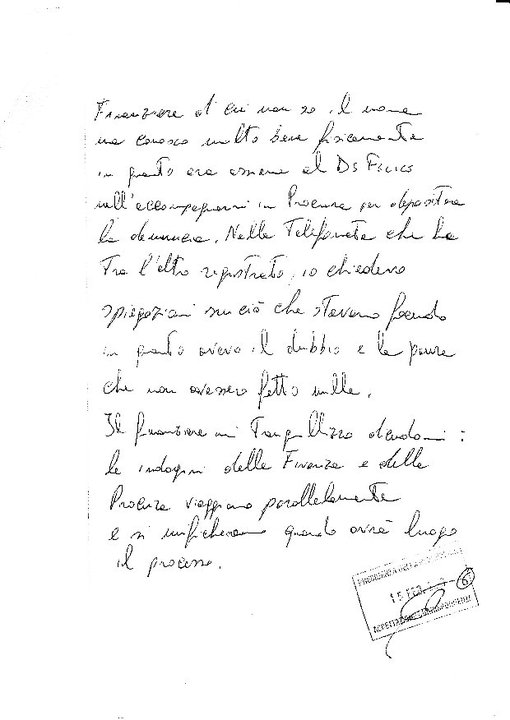 Finanziere di cui non so il nome
ma conosco molto bene fisicamente
in quanto era assieme al De Felice
nell'accompagnarmi in Procura per depositare
la denuncia. Nella Telefonata che ho
Tra l'altro registrato, io chiedevo
spiegazioni su ciò che stavano facendo
in quanto avevo il dubbio e la paura
che non avessero fatto nulla.
Il finanziere mi Tranquillizzo dicendomi:
le indagini della Finanza e della
Procura viaggiano parallelamente
e si unificheranno quando avrà luogo
il processo.
15 FEB.
6